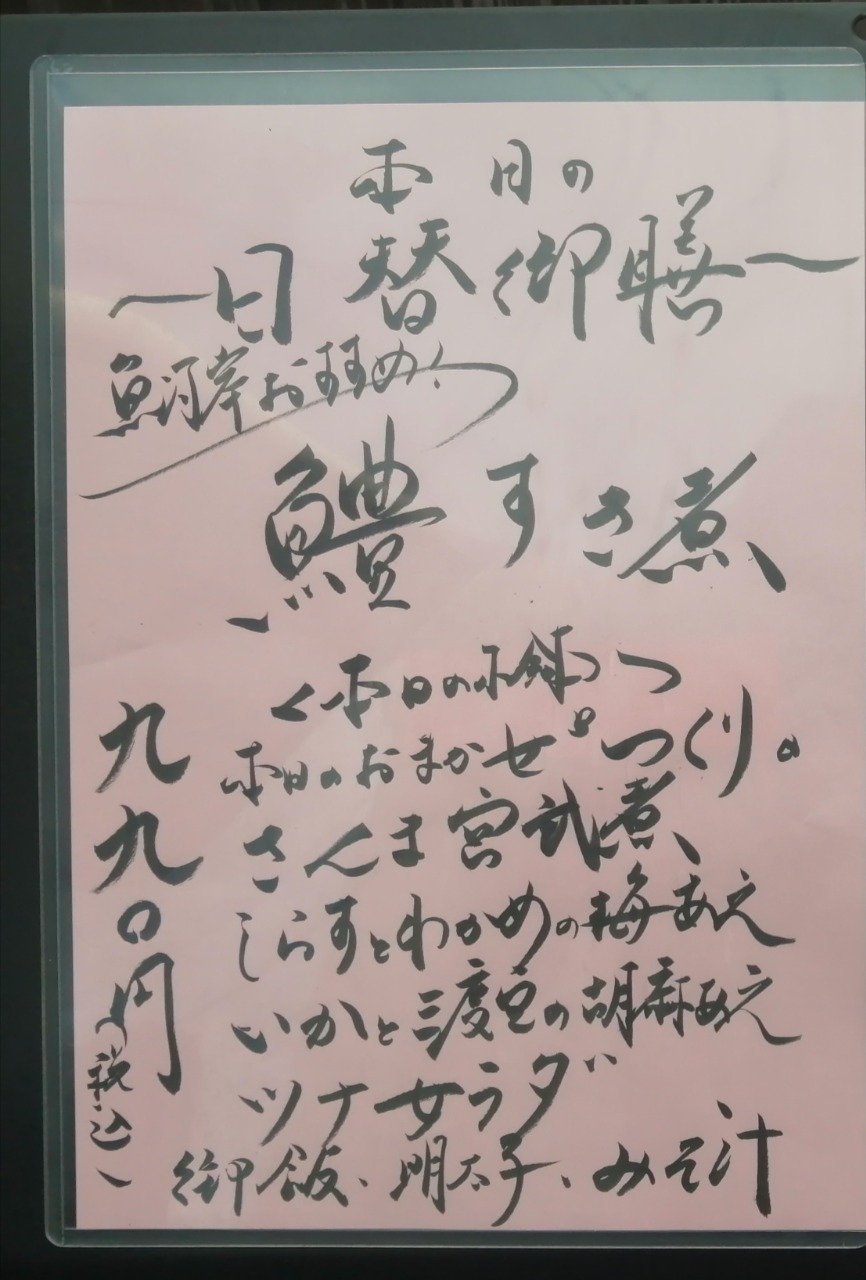 本日の
〜日替御膳〜
魚河岸おすすめ！
鱧すき煮
〈本日の小鉢〉
本日のおまかせ㋑つくり。
さんま宮武煮
しらすとわかめの梅あえ
いかと三度豆の胡麻あえ
ツナサラダ
御飯、明太子、みそ汁
九九〇円
(税込)